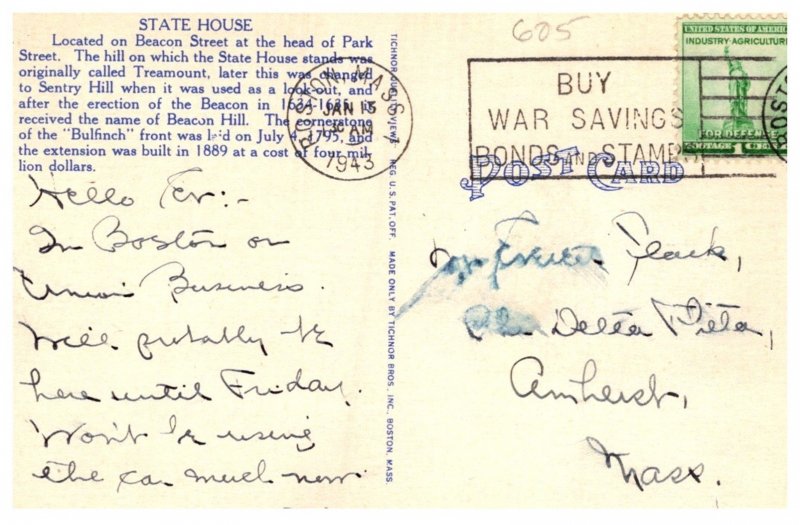 STATE HOUSE
Located on Beacon Street at the head of Park
Street. The hill on which the State House stands was
originally called Treamount, later this was changed
to Sentry Hill when it was used as a look-out, and
after the erection of the Beacon in 1634-1635, it
received the name of Beacon Hill. The cornerstone
of the "Bulfinch" front was laid on July 4, 1795, and
the extension was built in 1889 at a cost of four mil-
lion dollars.
Hello Ev:-
In Boston on
Union Business.
Will probably be
here until Friday.
Won't be using
the car much now
TICHNOR QUALITY VIEWS REG. U.S. PAT. OFF. MADE ONLY BY TICHNOR BROS. INC. BOSTON, MASS.
BOSTON MASS
JAN 13
AM
1943
605
BUY
WAR SAVINGS
BONDS AND STAMPS
UNITED STATES OF AMERICA
INDUSTRY·AGRICULTURE
FOR DEFENSE
POSTAGE 1 CENT
BOSTO
POST CARD
Mr Everett
Phi Delta Theta,
Amherst,
Mass.